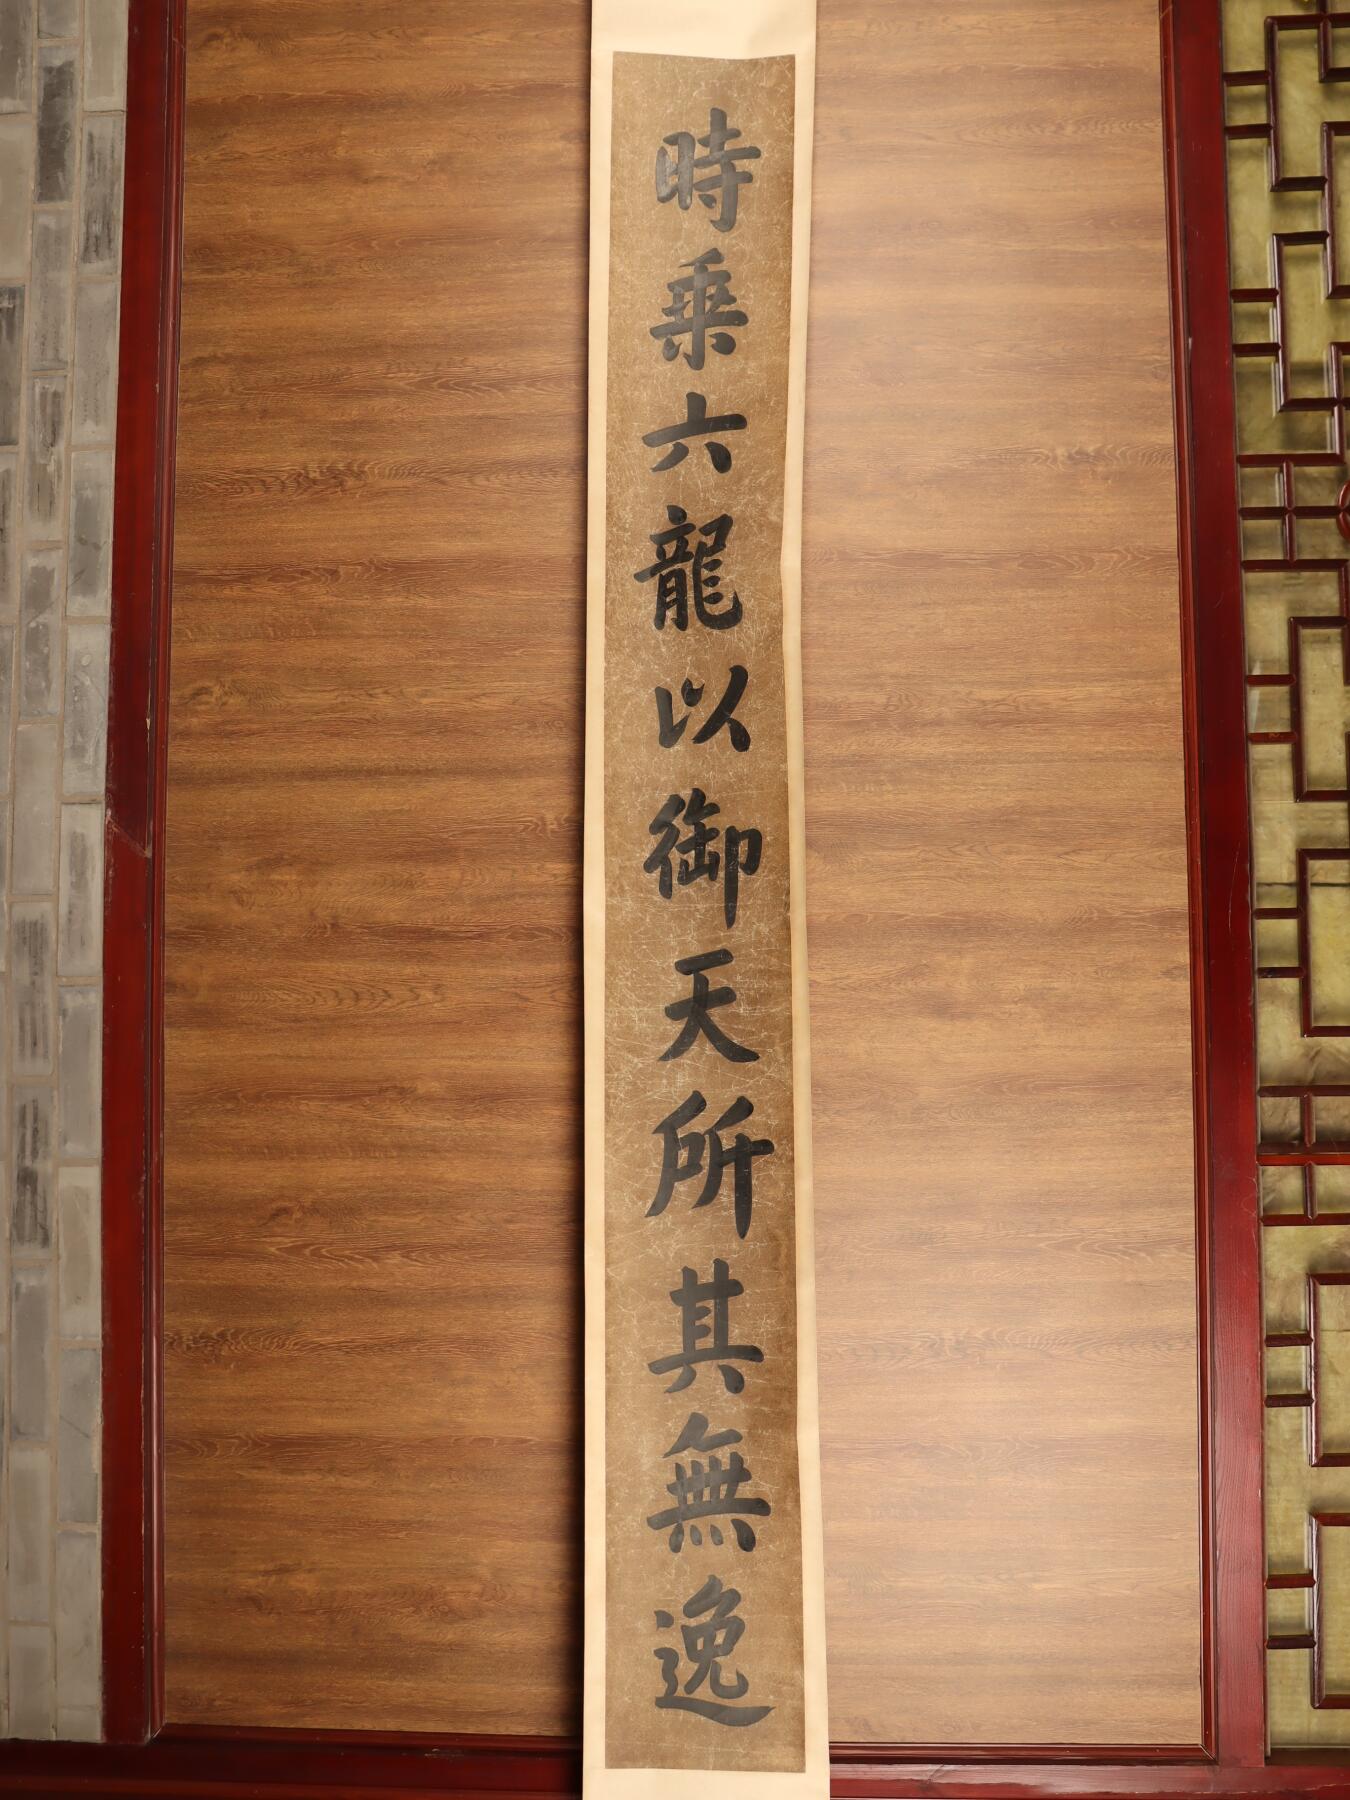 時乘六龍以御天所其無逸